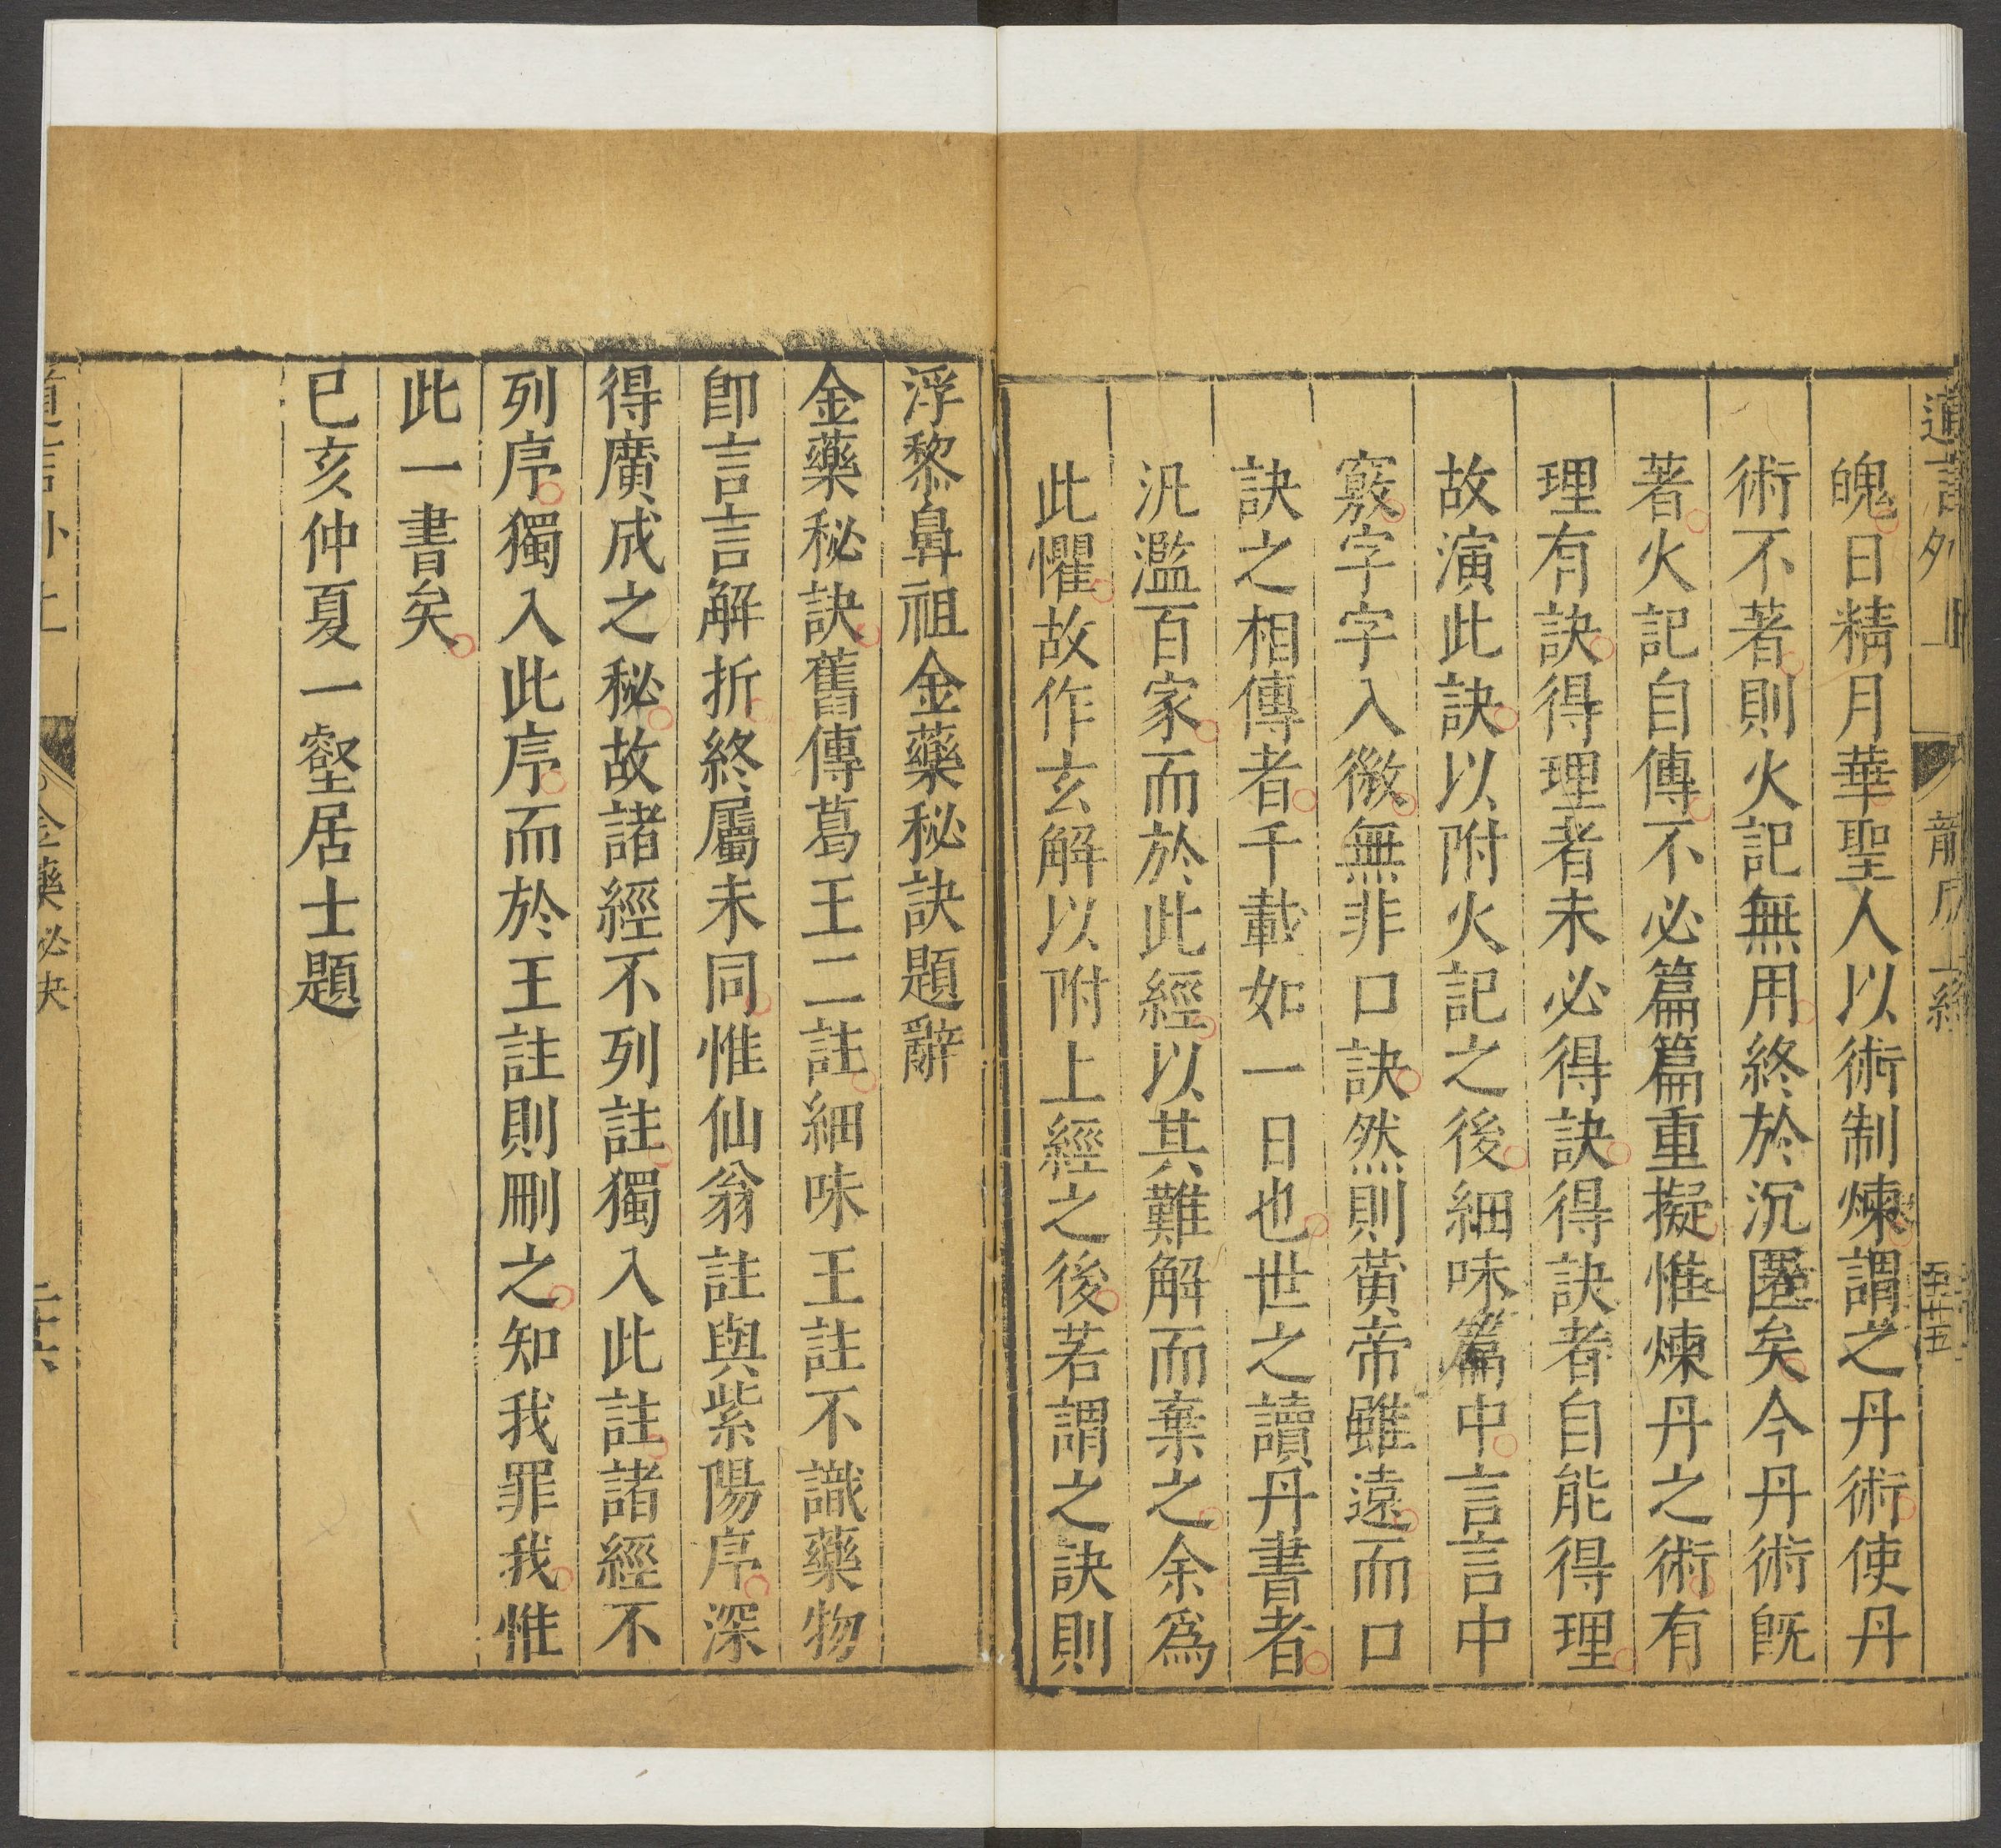 魄日精月華聖人以術制煉謂之丹術使丹
術不著則火記無用終於沉匿矣今丹術既
著火記自傳不必篇篇重擬惟煉丹之術有
理有訣得理者未必得訣得訣者自能得理
故演此訣以附火記之後細味篇中言言中
竅字字入微無非口訣然則黃帝雖遠而口
訣之相傳者千載如一日也世之讀丹書者
汎濫百家而於此經以其難解而棄之余為
此懼故作玄解以附上經之後若謂之訣則
浮黎鼻祖金藥秘訣題辭
金藥秘訣舊傳葛王二註細味王註不識藥物
卽言言解折終屬未同惟仙翁註與紫陽序深
得廣成之秘故諸經不列註獨入此註諸經不
列序獨入此序而於王註則刪之知我罪我惟
此一書矣
巳亥仲夏一壑居士題
金藥秘訣